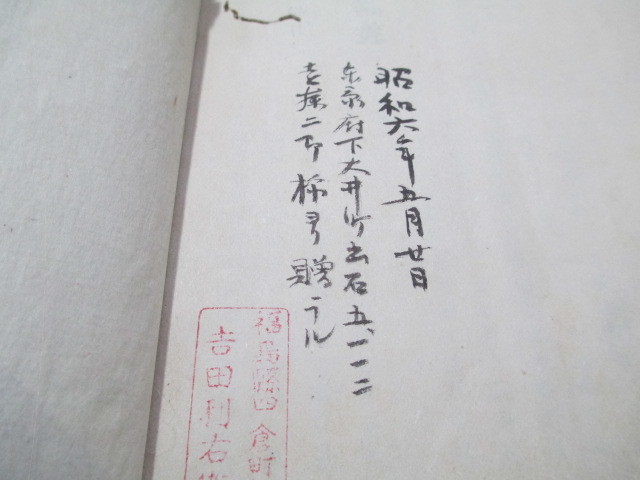 昭和六年五月廿日
東京府下大井町出石五、一一二
二郎様ヨリ贈ラル
福島縣田倉町
吉田利右